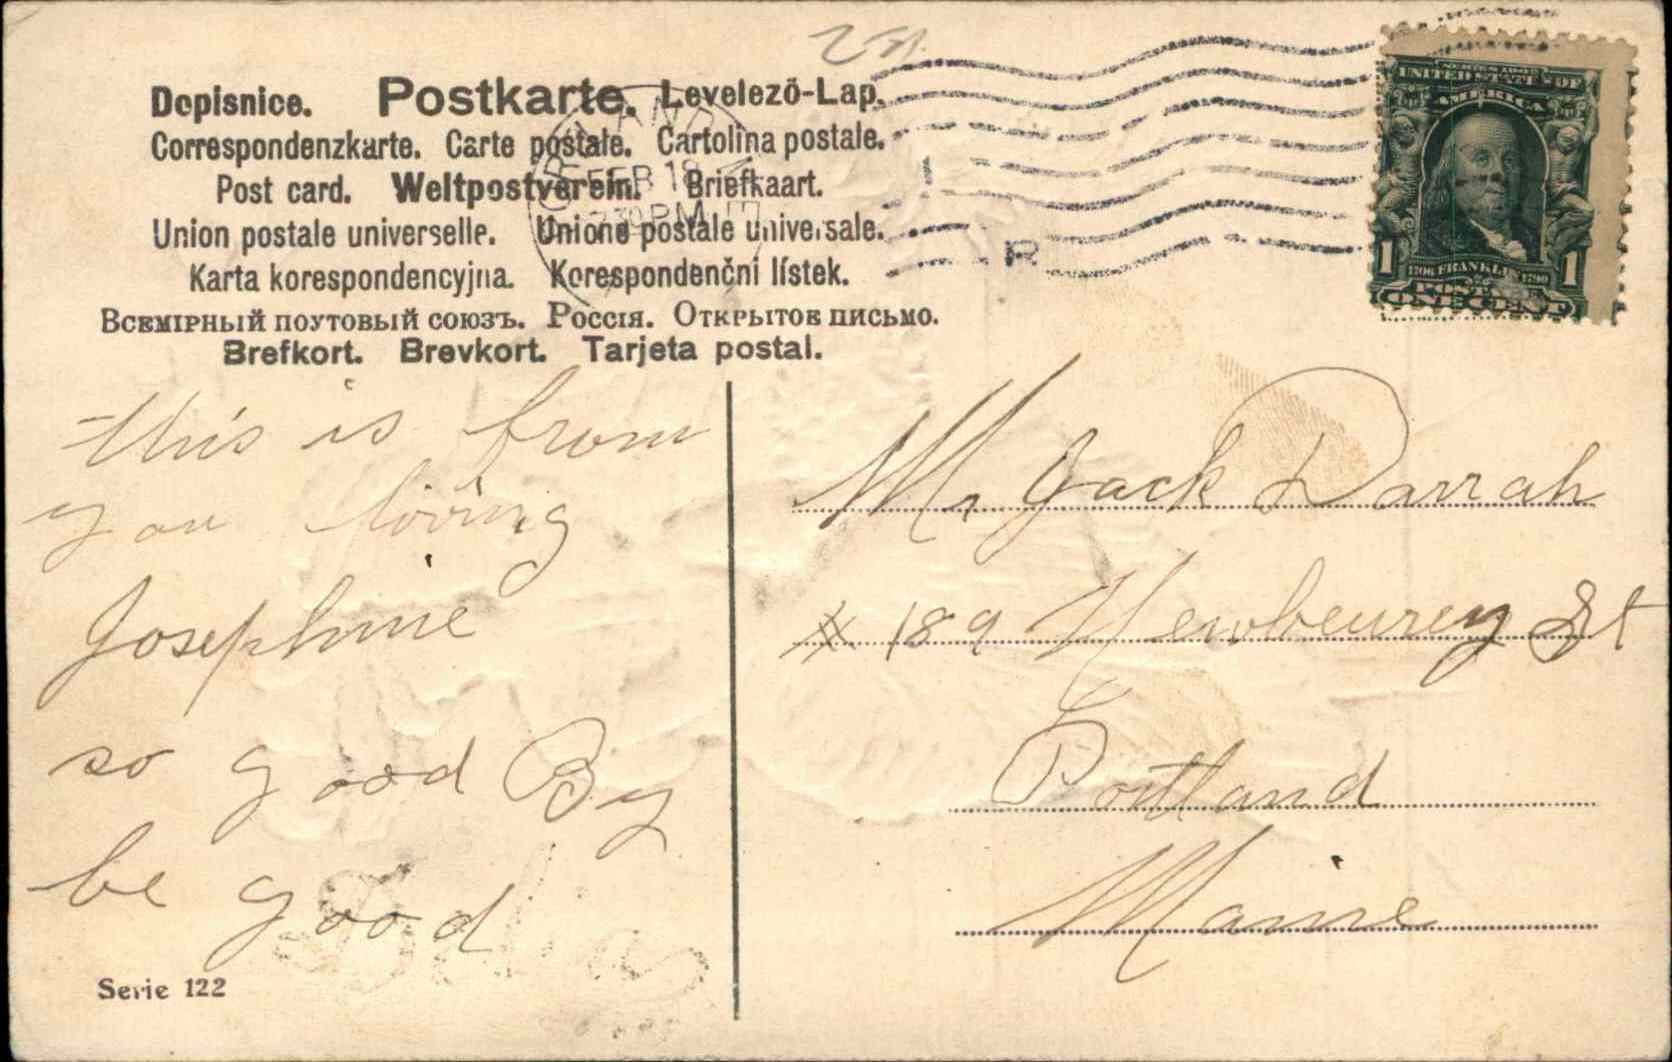 Dopisnice. Postkarte. Levelező-Lap.
Correspondenzkarte. Carte postale. Cartolina postale.
Post card. Weltpostverein. Briefkaart.
Union postale universelle. Unione postale universale.
Karta korespondencyjna. Korespondenční lístek.
Всемірный поутовый союзъ. Россія. Открытое письмо.
Brefkort. Brevkort. Tarjeta postal.
FEB 18
7 30 PM
R
UNITED STATES OF
AMERICA
1 1706 FRANKLIN 1790 1
POSTAGE
ONE CENT
this is from
you loving
Josephine
so good By
be good
Serie 122
Mr Jack Darrah
# 189 Newbeurey St
Portland
Maine